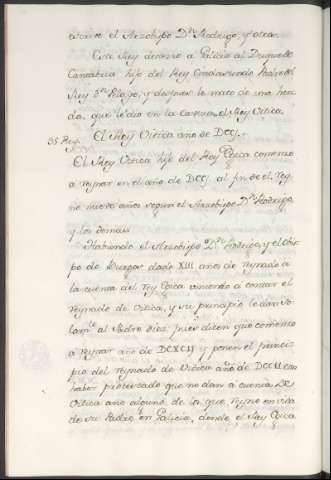 escrive el Arzobispo Dn Rodrigo y otros.
Este Rey desterro a Galicia al Duque de
Cantabria hijo del Rey Padre del
Rey Dn Pelayo, y despues le mato de una heri
da, que le dio en la cabeza, el Rey Vitica.
El Rey Vitica año de DCCJ.
35 Rey.
El Rey Vitica hijo del Rey Egica comenso
a reynar en el año de DCCJ. al fin de el. Rey
no nueve años segun el Arzobispo Dn Rodrigo
y los demas.
Habiendo el Arzobispo Dn Rodrigo, y el Obis
po de Burgos dado XIII años de reynado a
la cuenta del rey Egica vinendo a contar el
reynado de Vitica, y su principio le dan so
lamte al Padre dies. Pues dicen que comenso
a reynar año de DCXCIJ y ponen el princi
pio del reynado de Vitica año de DCCII con
haber protestado que no dan a cuenta de
Vitica año alguno de los que reyno en vida
de su Padre en Galicia, donde el Rey Egica